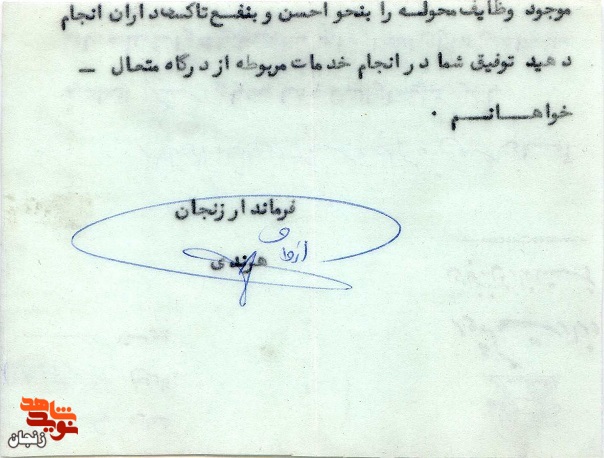 موجود وظایف محولسه را بنحو احسن و بنفع تاکسیداران انجام
دهید توفیق شما در انجام خدمات مربوطه از درگاه متعال –
خواهانم .
فرماندار زنجان
هرندی
نوید شاهد
زنجان